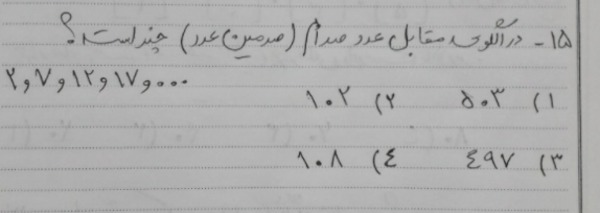 ۱۵- در الگوی مقابل عدد صدم (صدمین عدد) چند است؟
۲ و ۷ و ۱۲ و ۱۷ و ...
۱) ۵۰۳ ۲) ۱۰۲
۳) ٤۹۷ ٤) ۱۰۸